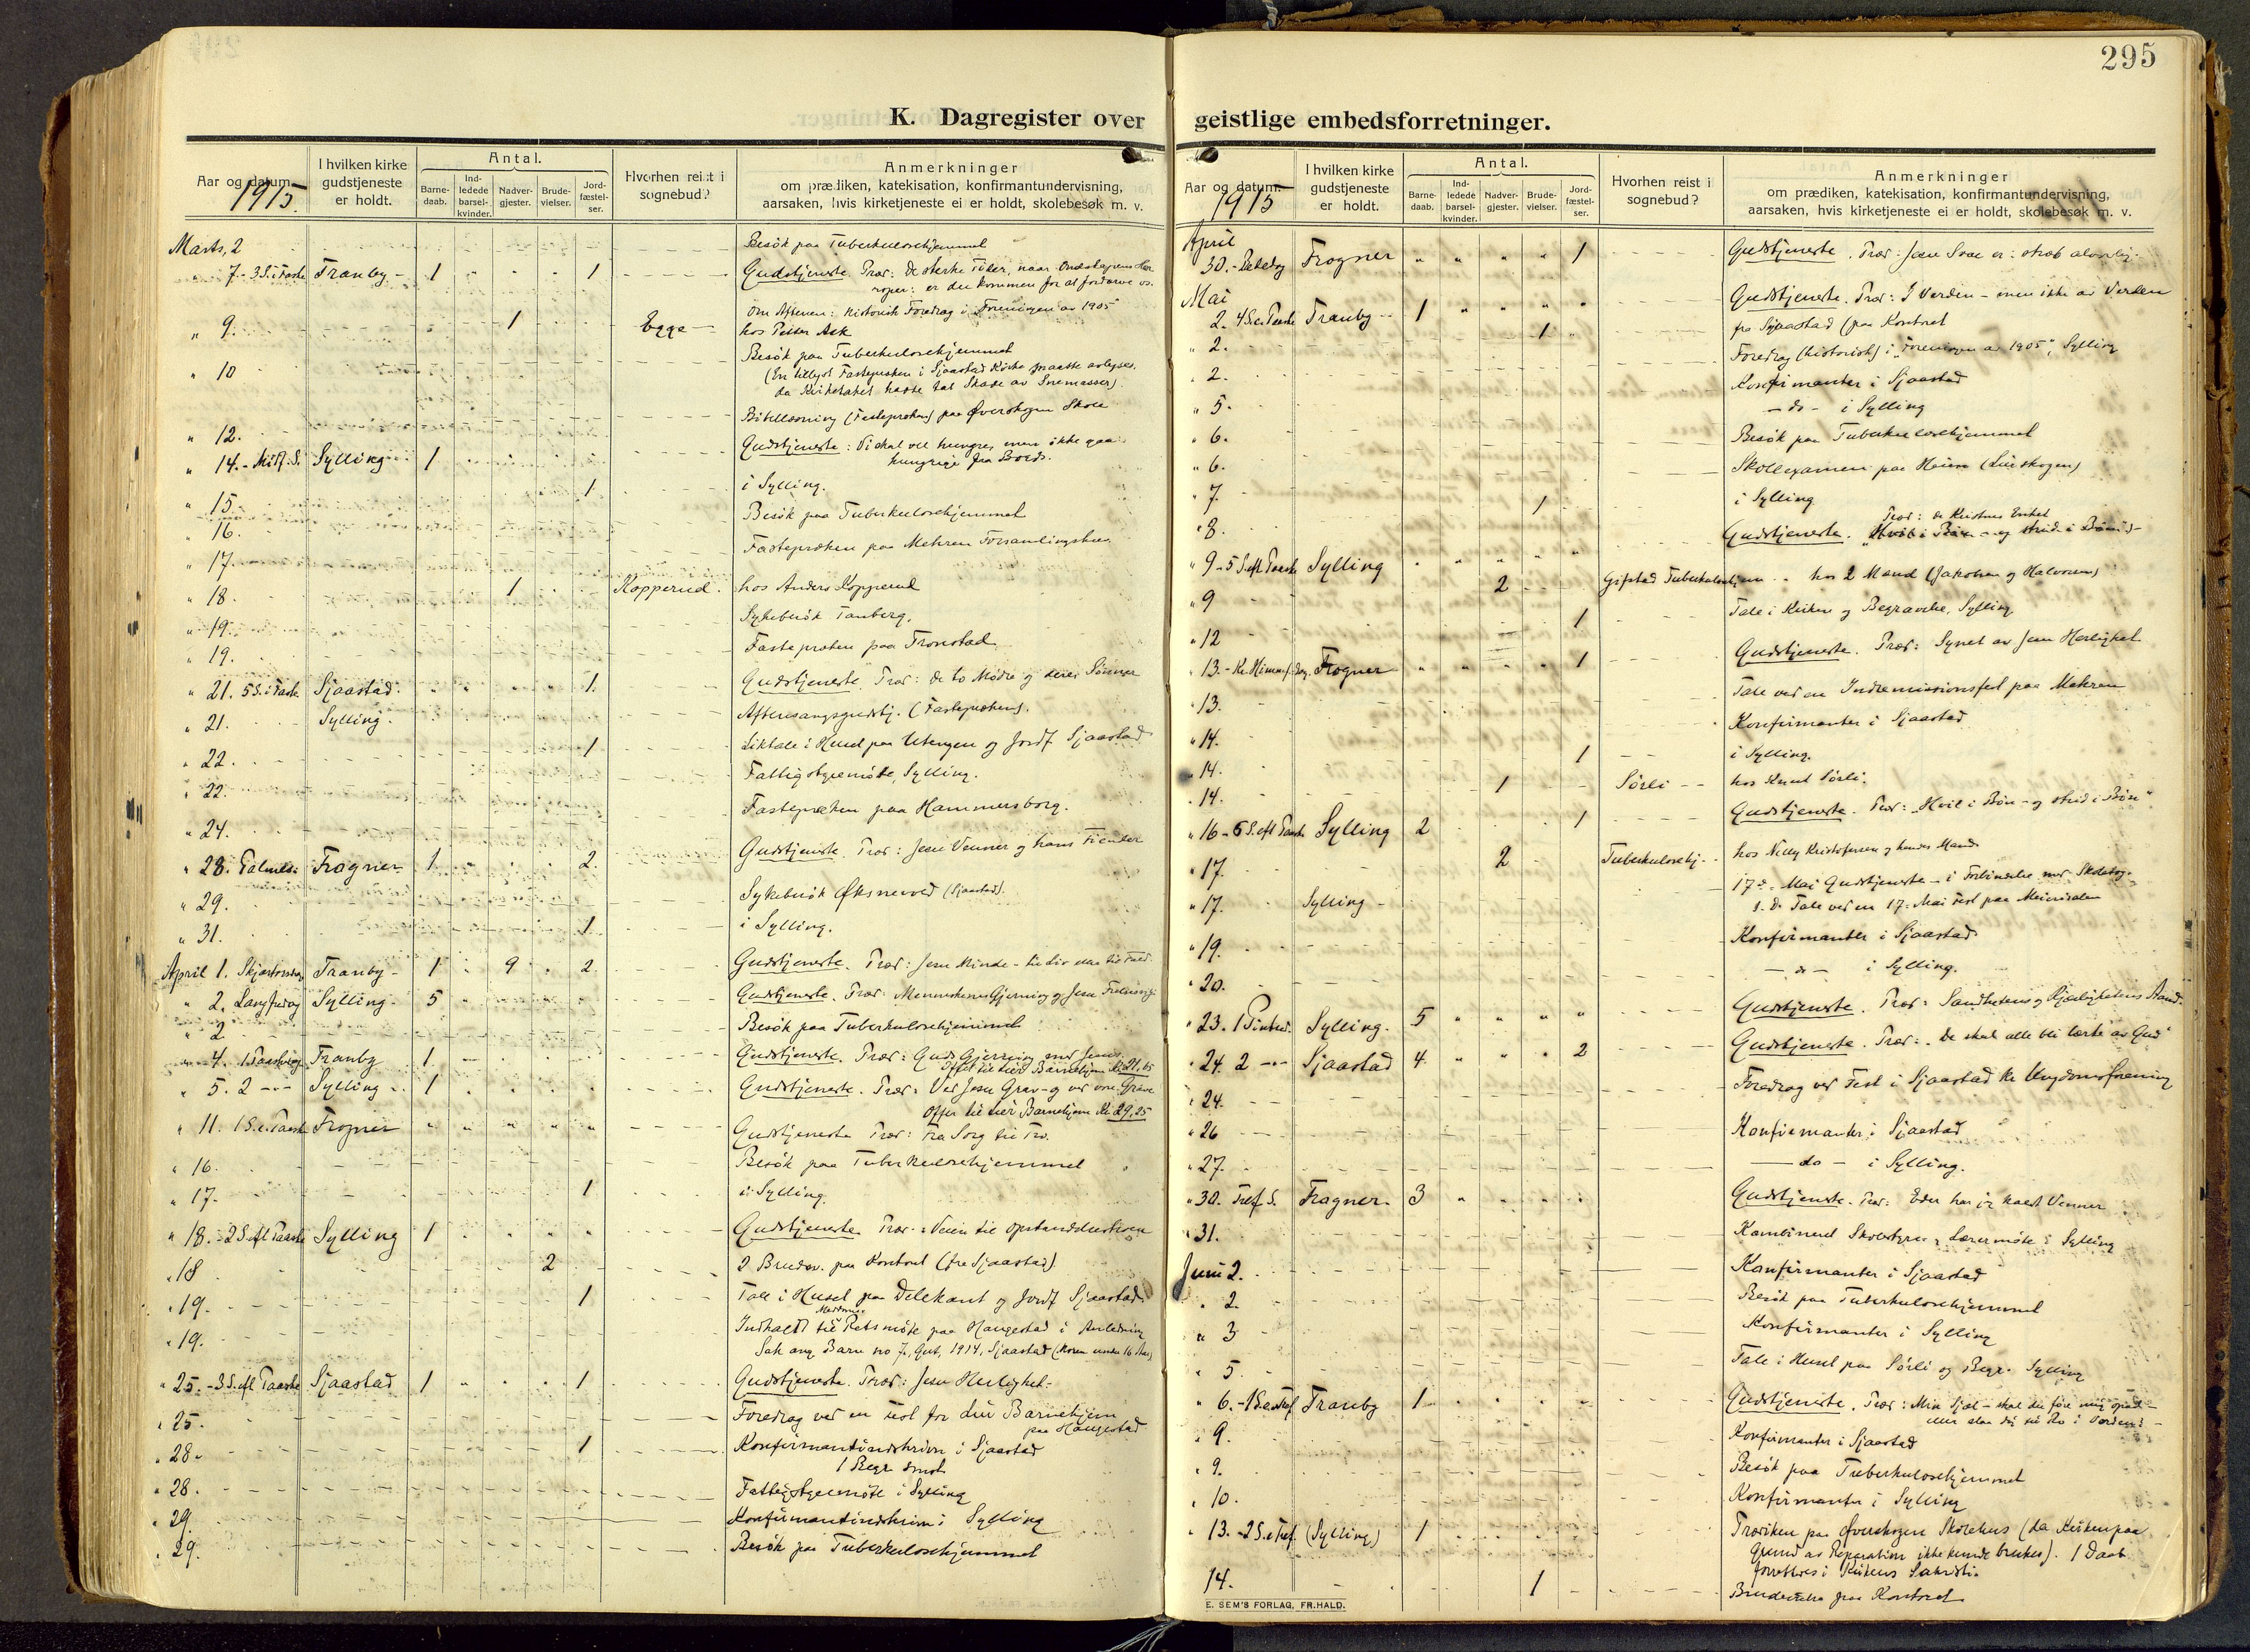 295
K. Dagregister over geistlige embedsforretninger.
Aar og datum.
1915.
I hvilken kirke gudstjeneste er holdt.
Antal.
Barne-daab.
Ind-ledede barsel-kvinder.
Nadver-gjester.
Brude-vielser.
Jord-fæstel-ser.
Hvorhen reist i sognebud?
Anmerkninger
om prædiken, katekisation, konfirmantundervisning,
aarsaken, hvis kirketjeneste ei er holdt, skolebesøk m. v.
Marts, 2 Besök paa Tuberkulosehjemmet
" 7.- 3 S. i Faste Tranby - 1 1 Gudstjeneste. Præd: De sterke Tider, naar
er du kommen for at fordærve os.
Om Aftenen: Historisk Foredrag i Foreningen av 1905
" 9. 1 Egge - hos Petter Ask
" 10 Besök paa Tuberkulosehjemmet
(En tillyst Fastepræken i Sjaastad Kirke maatte avlyses,
da Kirketaket hadde tat Skade av Snemasser).
" 12. Bibellæsning (Fastepræken) paa Överskogen Skole
" 14. - Midf. S. Sylling 1 Gudstjeneste: Vi skal vel hungre, men ikke gaa
hungrige fra Bords.
" 15. 1 i Sylling.
" 16. Besök paa Tuberkulosehjemmet
" 17. Fastepræken paa Mehren Forsamlingshus
" 18. 1 Kopperud. hos Anders Kopperud
" 19. Sykebesök Tanberg.
" 19. Fastepræken paa Tronstad
" 21. 5 S. i Faste Sjaastad. 1. Gudstjeneste. Præd: De to Mødre og deres Sönner
" 21. Sylling. Aftensangsgudstj. (Fastepræken).
" 22. 1 Liktale i Huset paa Utengen og Jordf. Sjaastad
" 22. Fattigstyremöte, Sylling.
" 24. Fastepræken paa Hammersborg.
" 28. Palmes. Frogner 1. 2. Gudstjeneste. Præd: Jesu Venner og hans Fiender
" 29. Sykebesök Øksnevad (Sjaastad).
" 31. 1 i Sylling.
April 1. Skjærtorsdag Tranby - 1 9 2. Gudstjeneste. Præd: Jesu Minde - til Liv eller til Fald.
" 2. Langfredag Sylling - 5 Gudstjeneste. Præd: Menneskenes Gjerning og Jesu
" 2 Besök paa Tuberkulosehjemmet
" 4. 1 Paaskedag Tranby 1 Gudstjeneste. Præd: Guds Gjerning med Jesus
Offer til Lier Barnehjem Kr. 21,65
" 5. 2 -"- Sylling - 1 Gudstjeneste. Præd: Ved Jesu Grav - og ved vore Grave
Offer til Lier Barnehjem Kr. 29,25
" 11. 1 S. e. Paaske Frogner " " " " " Gudstjeneste Præd: Fra Sorg til Tro.
" 16. Besök paa Tuberkulosehjemmet
" 17. 1 i Sylling.
" 18. 2 S. eft. Paaske Sylling 1 Gudstjeneste Præd: Veien til Opstandelsestroen
" 18 2 2 Brudev. paa Kontoret (fra Sjaastad)
" 19. 1 Tale i Huset paa Delekant og Jordf. Sjaastad
" 19. Indkaldt til Retsmöte paa Haugestad i Anledning
Sak ang. Barn no 7, Gut, 1914, Sjaastad (Moren under 16 Aar)
" 25. - 3 S. eft. Paaske Sjaastad 1 1 Gudstjeneste. Præd: Jesu Herlighet.
" 25. Foredrag ved en Fest for Lier Barnehjem
paa Haugestad
" 28. 1 Konfirmantindskrivn. i Sjaastad
1 Begr. smst.
" 28. Fattigstyremöte i Sylling
" 29. Konfirmantindskrivn. i Sylling
" 29. Besök paa Tuberkulosehjemmet
Aar og datum.
1915
I hvilken kirke gudstjeneste er holdt.
Antal.
Barne-daab.
Ind-ledede barsel-kvinder.
Nadver-gjester.
Brude-vielser.
Jord-fæstel-ser.
Hvorhen reist i sognebud?
Anmerkninger
om prædiken, katekisation, konfirmantundervisning,
aarsaken, hvis kirketjeneste ei er holdt, skolebesøk m. v.
April
30. - Bededag Frogner " " " " 1 Gudstjeneste. Præd: Jesu Svar er: strab alvorlig.
Mai
2. 4 S. e. Paaske Tranby - 1 Gudstjeneste. Præd: I Verden - men ikke av Verden
" 2. 1 fra Sjaastad (paa Kontoret
" 2. Foredrag (historisk) i "Foreningen av 1905", Sylling
" 5. Konfirmanter i Sjaastad
" 6. - do - i Sylling
" 6. Besök paa Tuberkulosehjemmet
" 7. Skoleexamen paa Heien (Lierskogen)
" 8. 1 i Sylling
Præd: de Kristnes Enhet
" 9 - 5 S. eft. Paaske Sylling Gudstjeneste. "Hvil i Bön - og strid i Bön"
" 9 2 Gifstad Tuberkulosehjem hos 2 Mænd (Jakobsen og Halvorsen)
" 12 1 Tale i Kirken og Begravelse, Sylling
" 13. - Kr. Himmelf. dag. Frogner 1 Gudstjeneste. Præd: Synet av Jesu Herlighet
" 13. Tale ved en Indremissionsfest paa Mehren
" 14. Konfirmanter i Sjaastad
" 14. 1 i Sylling.
" 14. 1 Sørli - hos Knut Sørli.
" 16 - 6 S. eft. Paaske Sylling 2 1 Gudstjeneste. Præd: "Hvil i Bön - og strid i Bön"
" 17. 2 Tuberkulosehj. hos Nelly Kristofersen og hendes Mand
" 17. Sylling - 17de Mai Gudstjeneste - i Forbindelse med Skoletog.
s. D. Tale ved en 17de Mai Fest paa
" 19. Konfirmanter i Sjaastad
" 20. - do - i Sylling.
" 23. 1 Pintsed. Sylling. 5 " " " " Gudstjeneste. Præd: Sandhetens og Kjærlighetens Aand.
" 24. 2 -"- Sjaastad 4 " " " 2 Gudstjeneste. Præd: De skal alle bli lærte av Gud
" 24. Foredrag ved Fest i Sjaastad kr. Ungdomsforening
" 26 Konfirmanter i Sjaastad
" 27. - do - i Sylling.
" 30. Tref. S. Frogner. 3 Gudstjeneste. Præd: Eder har jeg kaldt Venner
" 31. Kombineret Skolestyre og Lærermöte i Sylling
Juni 2. Konfirmanter i Sjaastad
" 2. Besök paa Tuberkulosehjemmet
" 3 Konfirmanter i Sylling
" 5. Tale i Huset paa Sørli og Begr. Sylling
" 6. - 1 S. e. Tref. Tranby 1 Gudstjeneste. Præd: Min Sjæl - skal du före mig opad -
eller slaa dig til Ro i Verden?
" 9. Konfirmanter i Sjaastad
" 9. Besök paa Tuberkulosehjemmet
" 10. Konfirmanter i Sylling
" 13. - 2 S. e. Tref. (Sylling) 1 Prædiken paa Överskogen Skolehus (da Kirken paa
Grund av Reparation ikke kunde brukes). 1 Daab
forrettedes i Kirkens Sakristi.
14. 1 Brudevielse paa Kontoret
E. SEM'S FORLAG, FR.HALD.